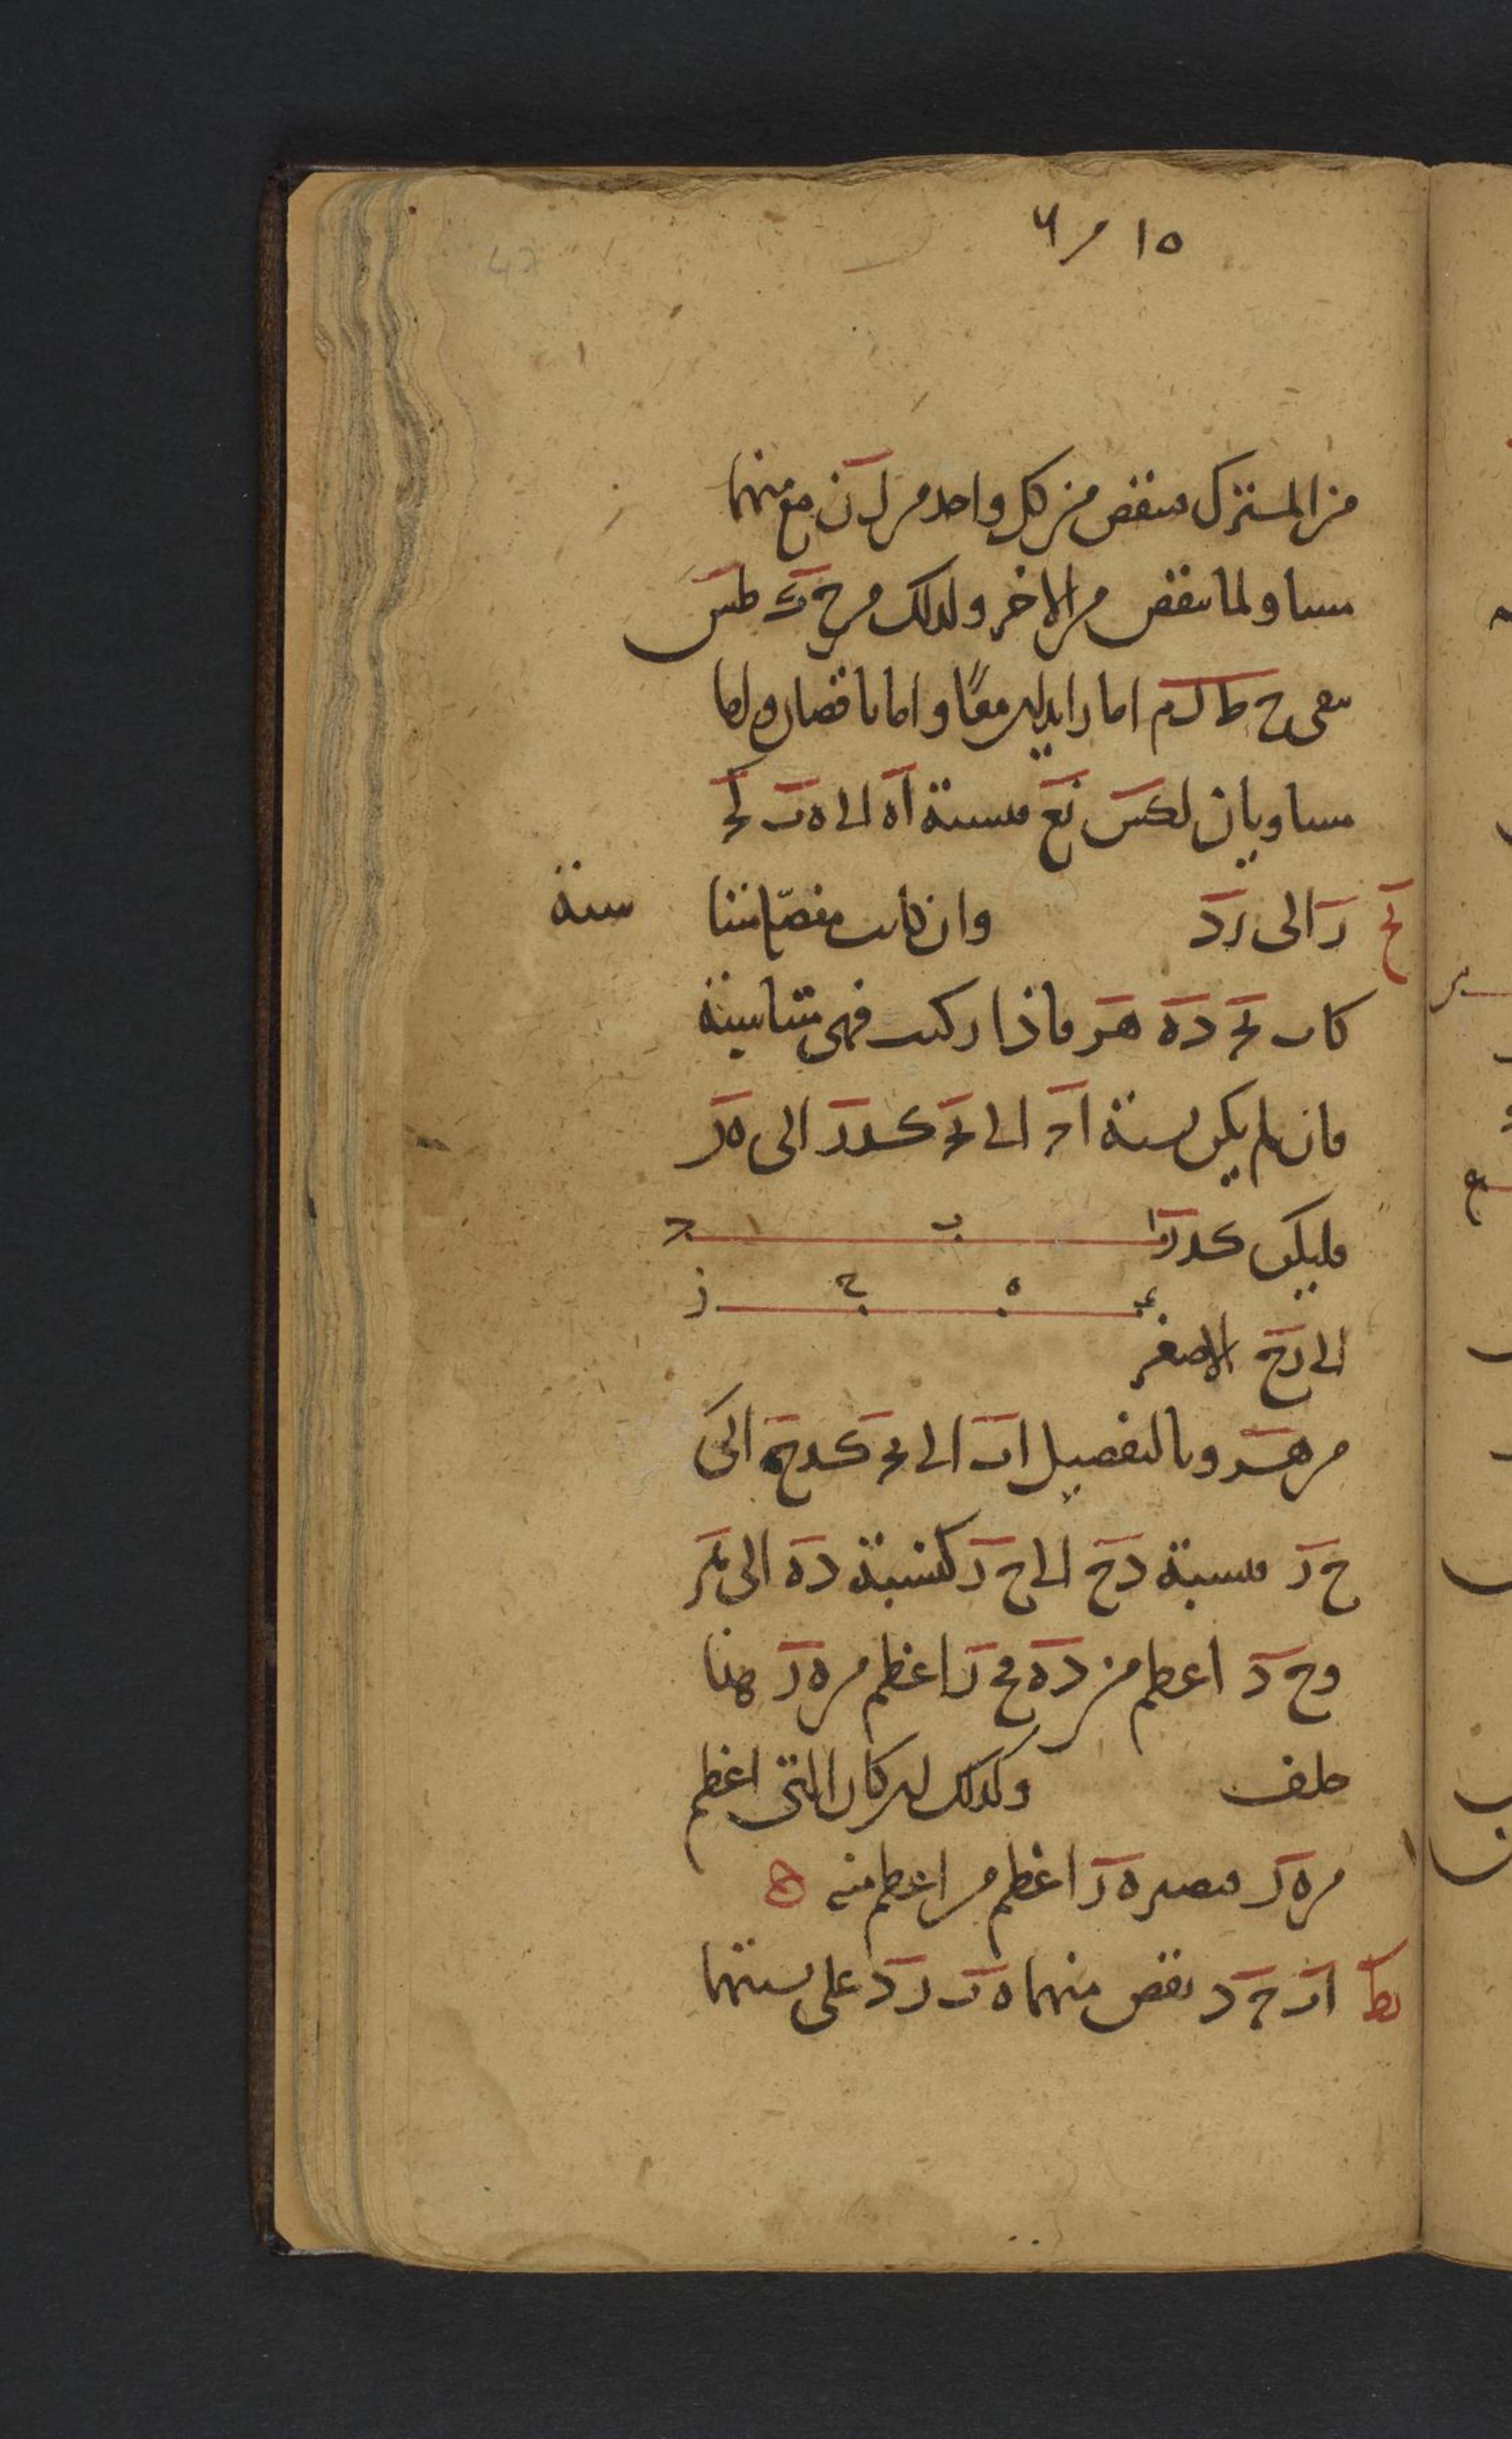 ١٥ ٦
من المشترك فينقص من كل واحد من ل ن مع منهما
مساو لما ينقص من الاخر ولذلك من ح ك ط س
يبقى ح ط ل م اما زايدين معًا واما ناقصان واما
مساويان لك س ن ع فنسبة اه الى ه ب كح
ر الى ر د وان كانت مفصّلة متنا سبة
يح
كاب بح ده هر فاذا ركبت فهى متناسبة
فان لم يكن نسبة اح الى بح كدر الى ه ر
فليكن كدر
ا ب ج
د ه ح ز
الى رح الاصغر
من هر وبالتفصيل اب الى بح كدح الى
ح ر فنسبة دح الى ح ر كنسبة ده الى هر
وح د اعظم من ده فح ر اعظم من ه ر هذا
خلف وكذلك ان كان الى اعظم
من ه ر فيصير ه ر اعظم من اعظم منه ه
يط اب ح د نقص منهما ه ب ر د على نسبتهما